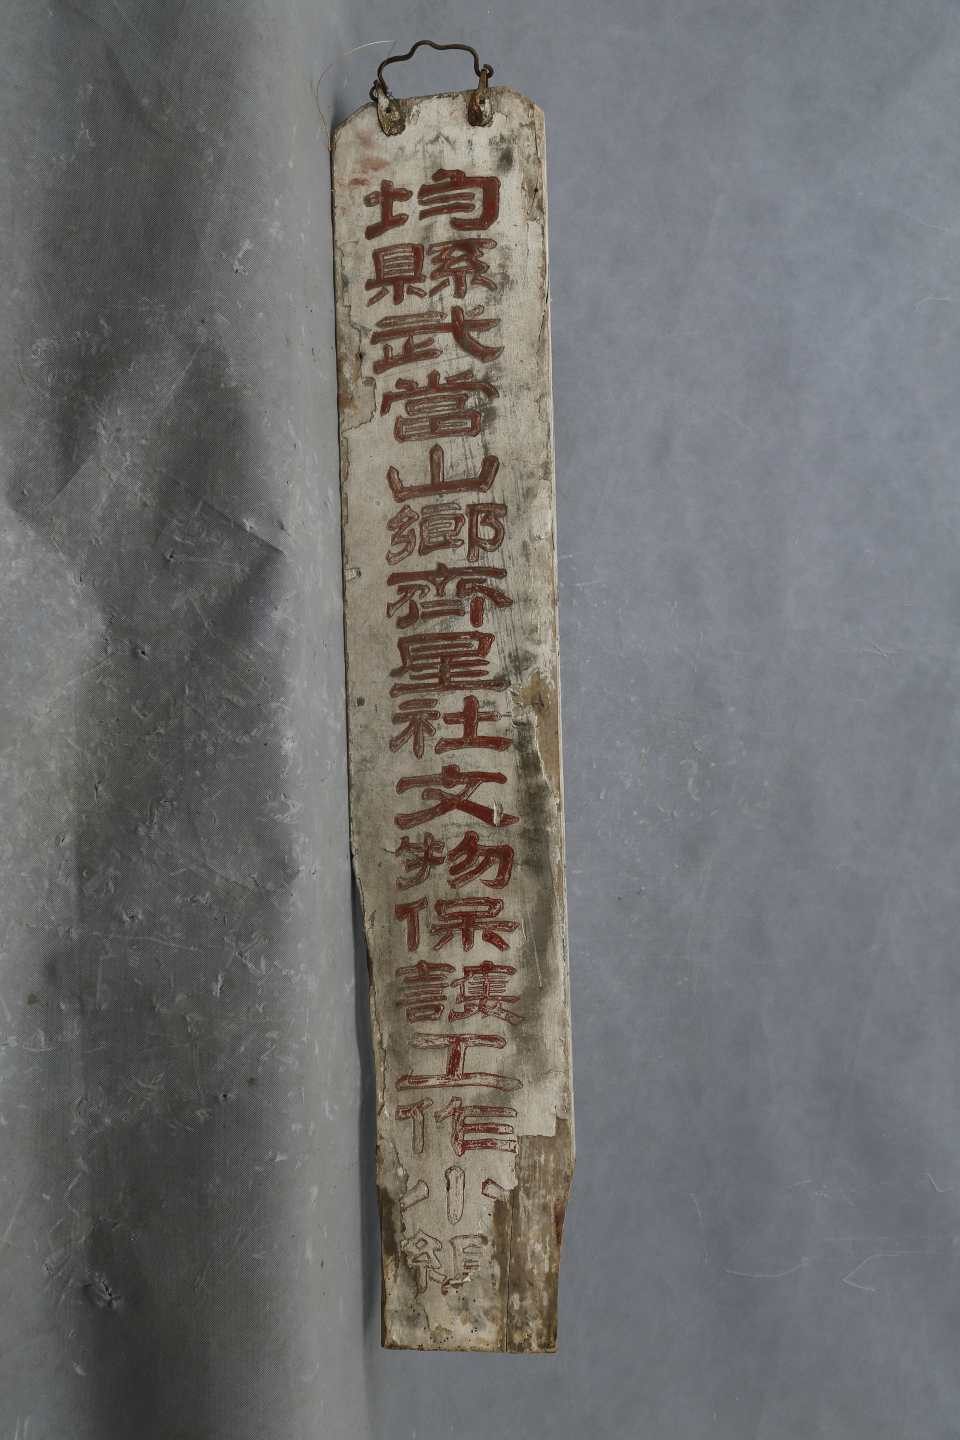 均縣武當山鄉齊星社文物保護工作小組